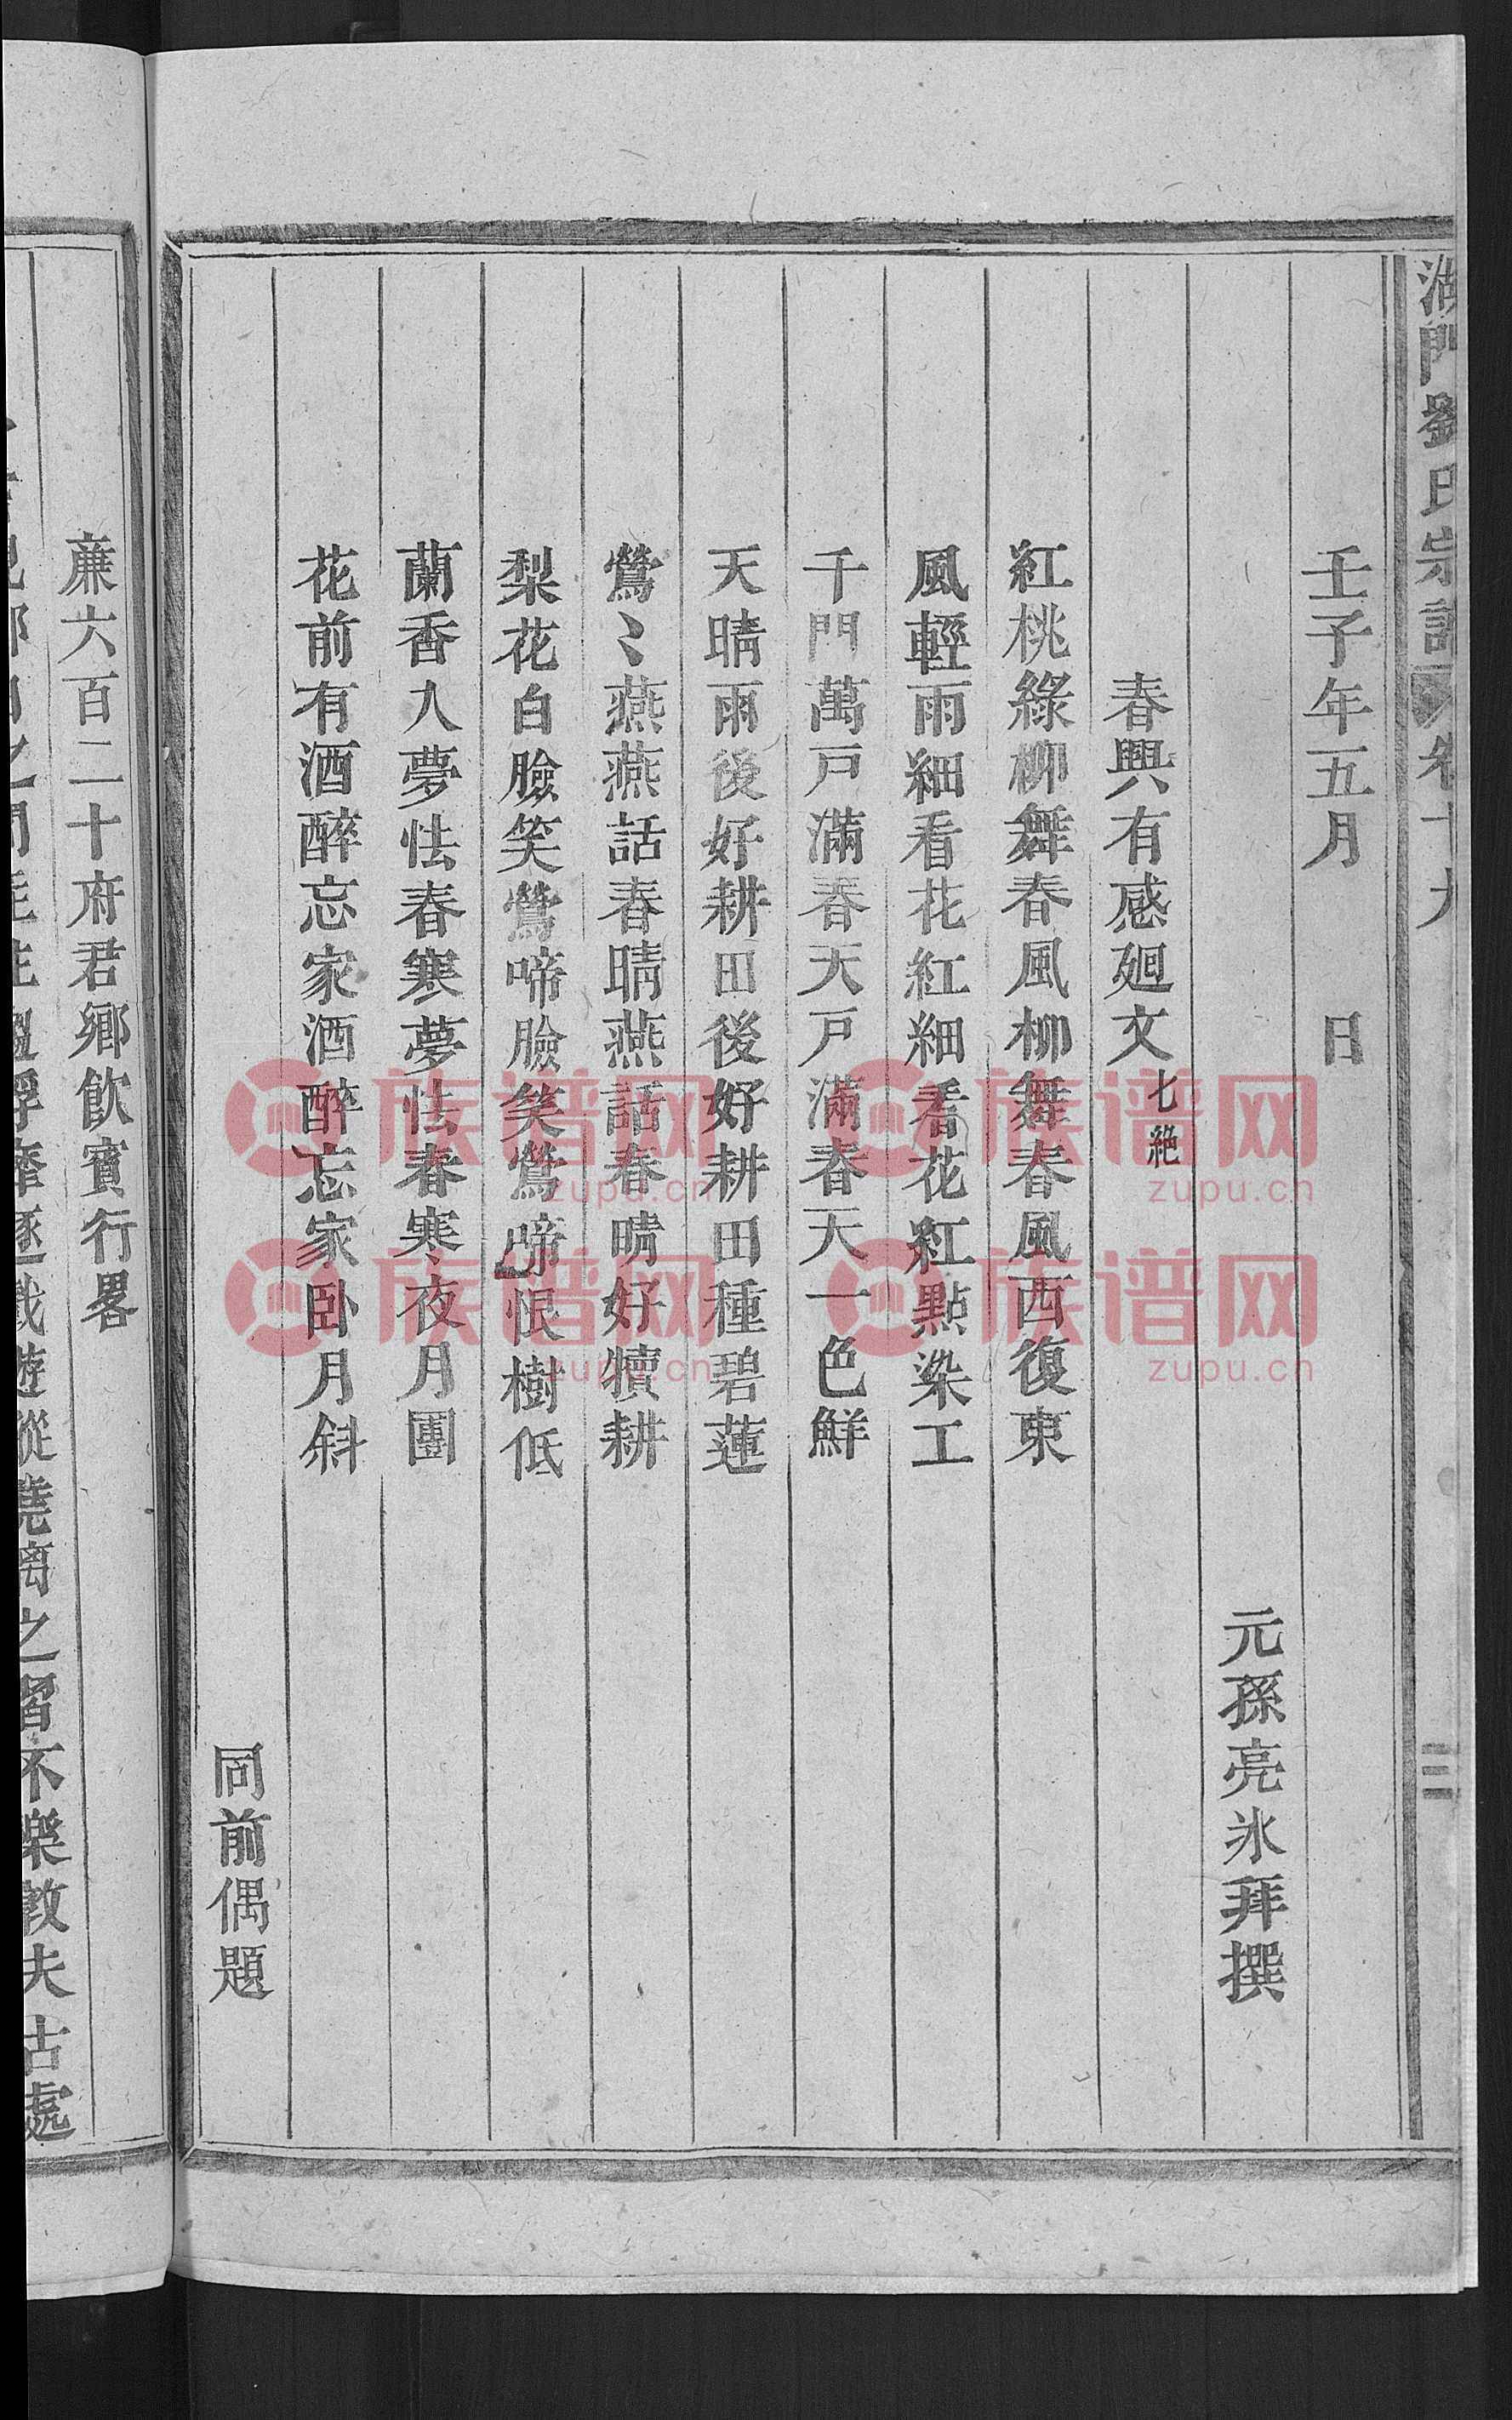 湖門劉氏宗譜 卷十九 三
壬子年五月 日
元孫亮氷拜撰
春興有感廻文七絶
紅桃綠柳舞春風柳舞春風西復東
風輕雨細看花紅細看花紅點染工
千門萬戸滿春天戸滿春天一色鮮
天晴雨後好耕田後好耕田種碧蓮
鶯〻燕燕話春晴燕話春晴好犢耕
梨花白臉笑鶯啼臉笑鶯啼恨樹低
蘭香人夢怯春寒夢怯春寒夜月團
花前有酒醉忘家酒醉忘家卧月斜
同前偶題
蔴六百二十府君鄉飲賓行畧
之習不樂敦夫古處
族谱网
zupu.cn
族谱网
zupu.cn
族谱网
zupu.cn
族谱网
zupu.cn